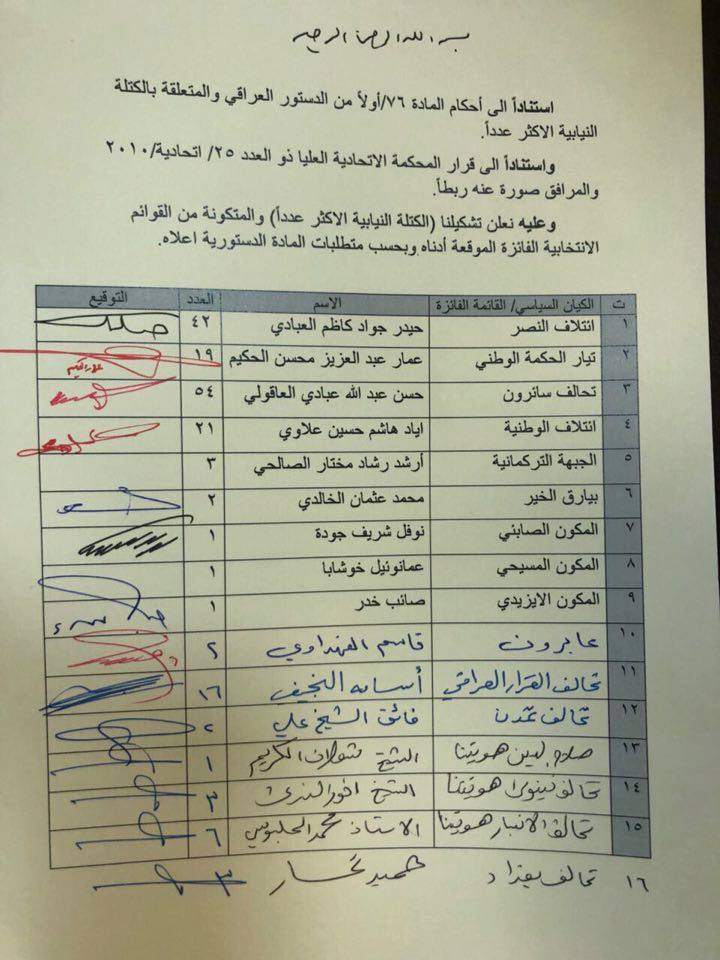 بسم الله الرحمن الرحيم
استناداً الى أحكام المادة ٧٦/أولاً من الدستور العراقي والمتعلقة بالكتلة
النيابية الاكثر عدداً.
واستناداً الى قرار المحكمة الاتحادية العليا ذو العدد ٢٥/ اتحادية/٢٠١٠
والمرافق صورة عنه ربطاً.
وعليه نعلن تشكيلنا (الكتلة النيابية الاكثر عدداً) والمتكونة من القوائم
الانتخابية الفائزة الموقعة أدناه وبحسب متطلبات المادة الدستورية اعلاه.
ت الكيان السياسي/ القائمة الفائزة الاسم العدد التوقيع
١ ائتلاف النصر حيدر جواد كاظم العبادي ٤٢
٢ تيار الحكمة الوطني عمار عبد العزيز محسن الحكيم ١٩
٣ تحالف سائرون حسن عبد الله عبادي العاقولي ٥٤
٤ ائتلاف الوطنية اياد هاشم حسين علاوي ٢١
٥ الجبهة التركمانية أرشد رشاد مختار الصالحي ٣
٦ بيارق الخير محمد عثمان الخالدي ٢
٧ المكون الصابني نوفل شريف جودة ١
٨ المكون المسيحي عمانوئيل خوشابا ١
٩ المكون الايزيدي صائب خدر ١
١٠ عابرون قاسم الفهداوي ٢
١١ تحالف القرار العراقي أسامة النجيفي ١٦
١٢ تحالف تمدن فائق الشيخ علي ٢
١٣ صلاح الدين هويتنا الشيخ الكريم ١
١٤ تحالف نينوى هويتنا الشيخ ٣
١٥ تحالف الانبار هويتنا الاستاذ محمد الحلبوسي ٦
١٦ تحالف بغداد ٣